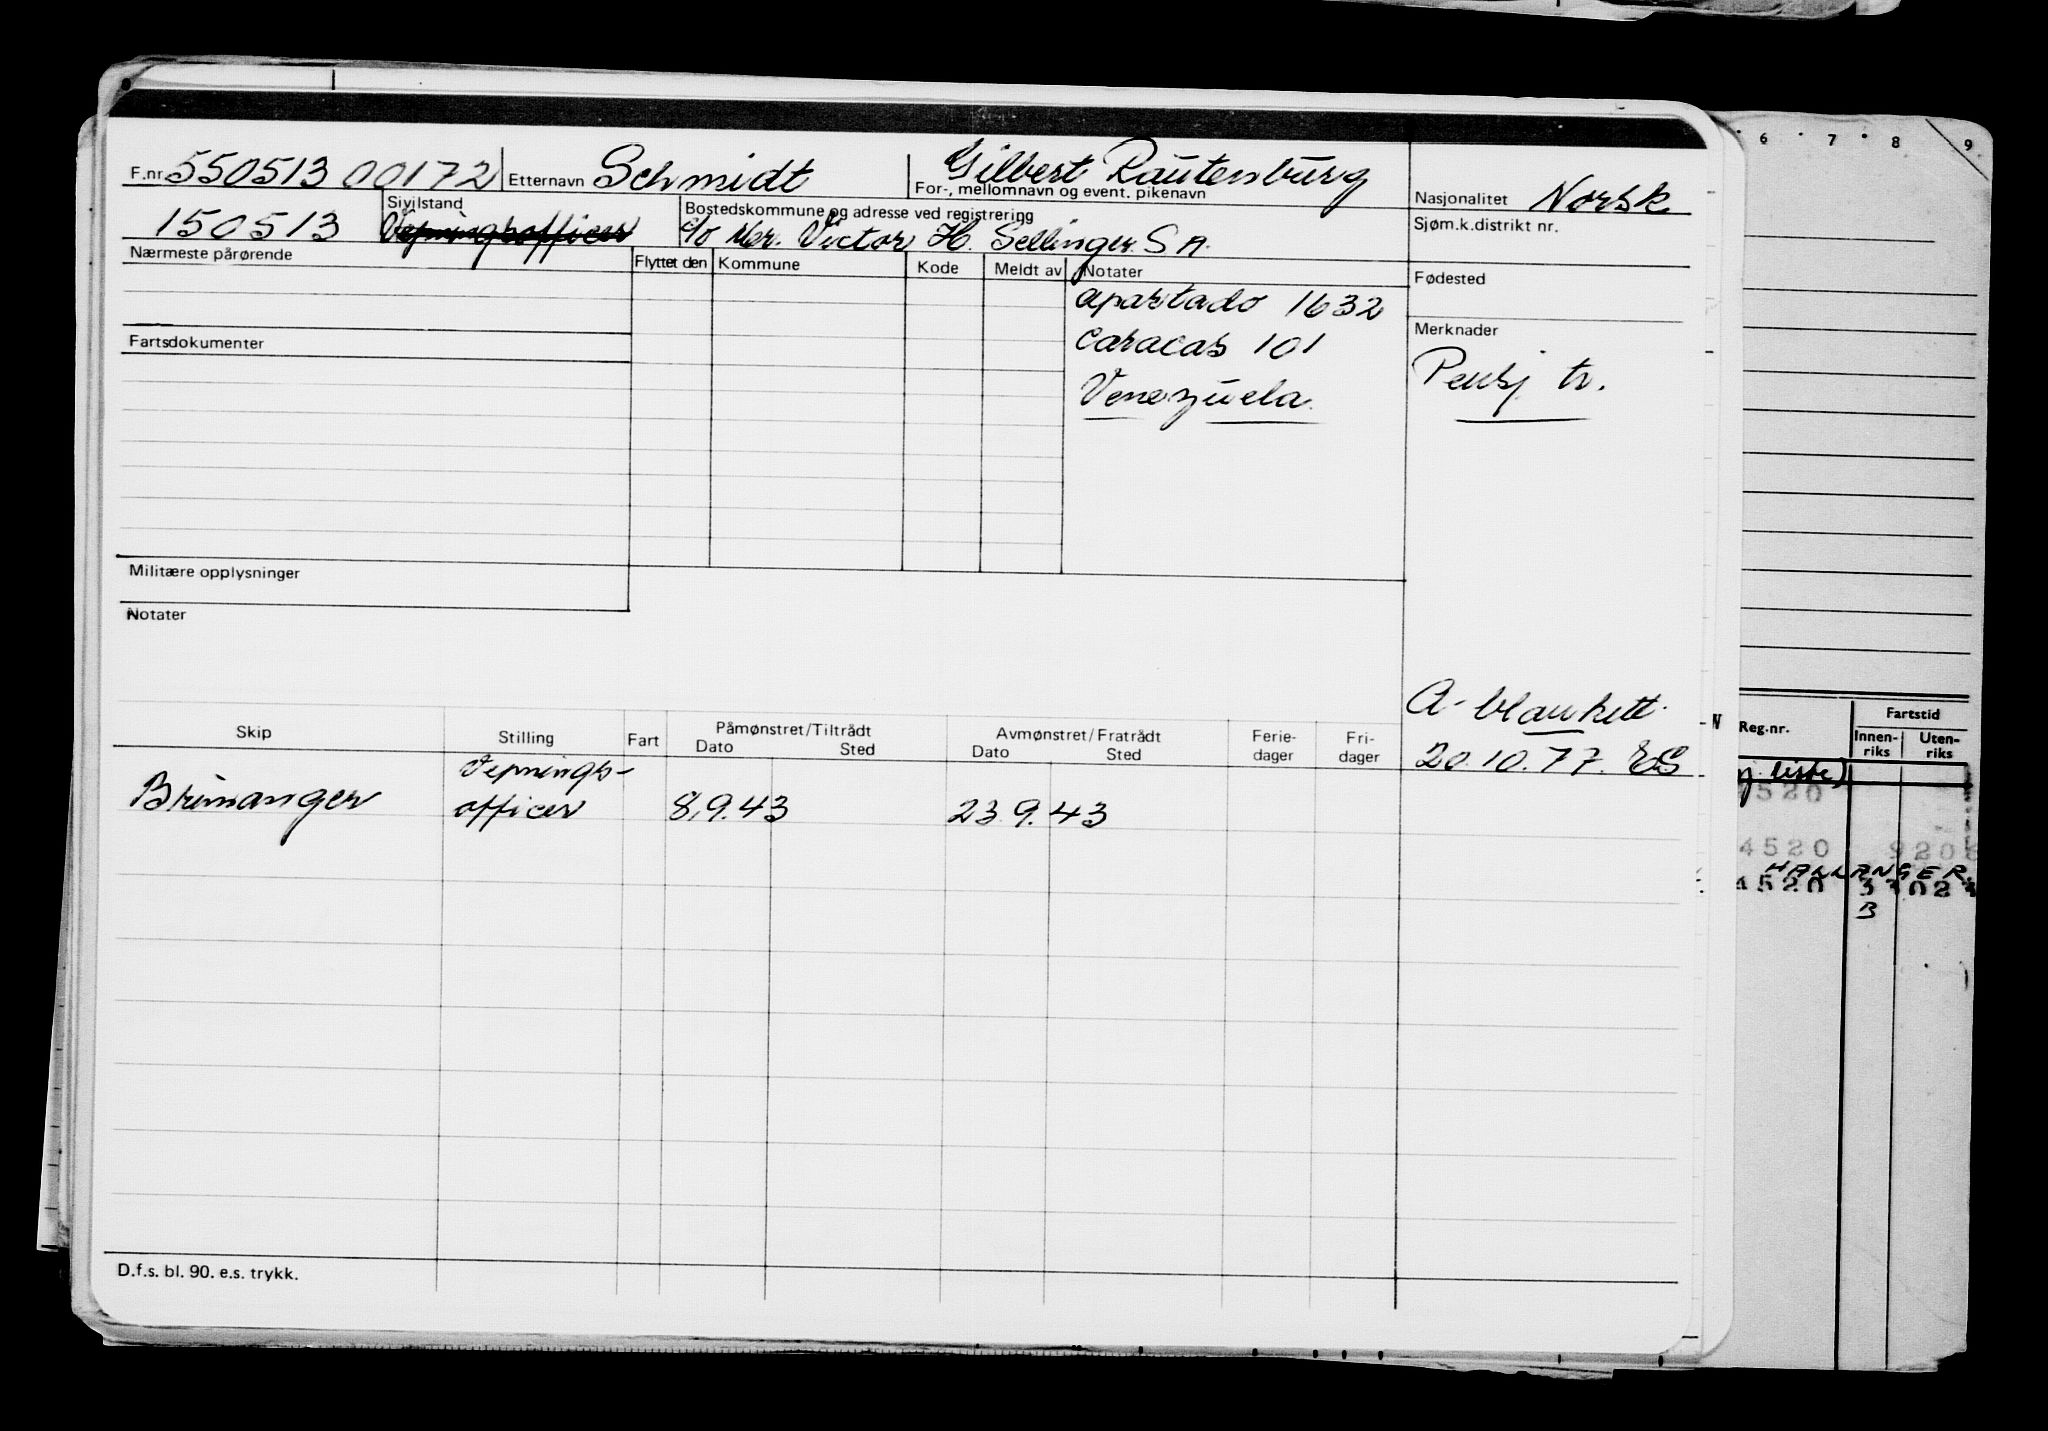 F.nr. 550513 00172 Etternavn Schmidt Gilbert Rautenburg
For-, mellomnavn og event. pikenavn
Nasjonalitet Norsk
150513 Sivilstand Vepningsofficer
Bostedskommune og adresse ved registrering
c/o Mr. Victor H. Sellinger S A.
Sjøm.k.distrikt nr.
Nærmeste pårørende
Flyttet den Kommune Kode Meldt av Notater
Fødested
apartado 1632
Caracas 101
Venezuela.
Merknader
Pensj tr.
Fartsdokumenter
Militære opplysninger
Notater
A-blankett.
20.10.77. ES
Skip Stilling Fart Påmønstret/Tiltrådt Avmønstret/Fratrådt Ferie-dager Fri-dager
Dato Sted Dato Sted
Brimanger Vepnings-
officer 8.9.43 23.9.43
D.f.s. bl. 90. e.s. trykk.
6 7 8 9
Reg.nr. Fartstid
Innen-riks Uten-riks
liste)
520
4520 920
HALLANGER
4520 3302
B